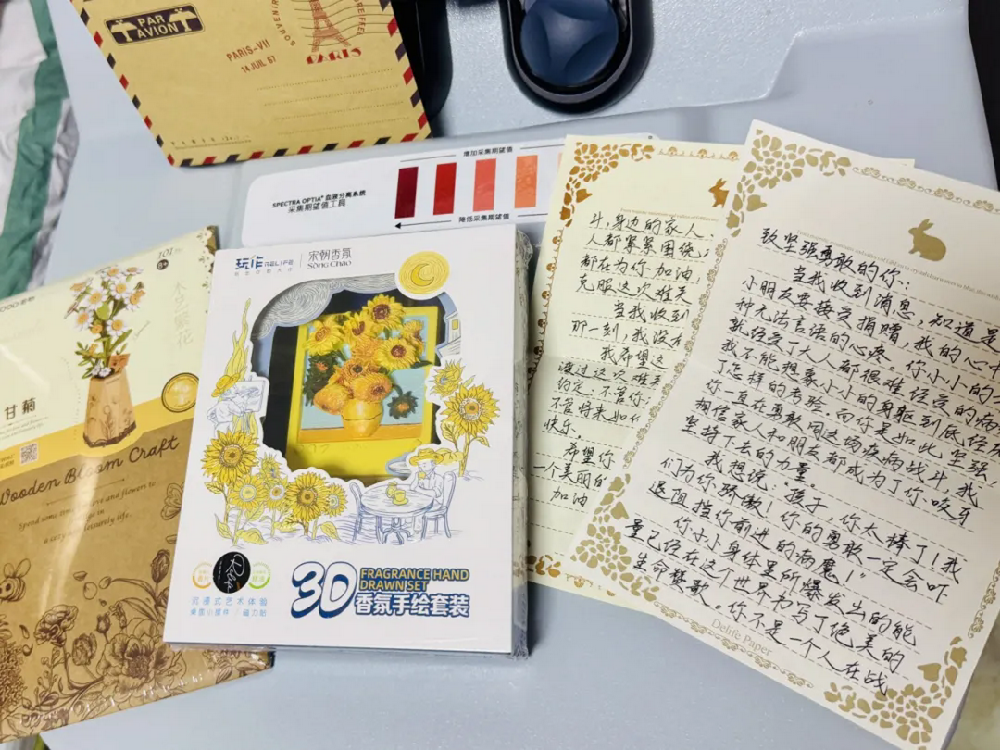 PAR
AVION
PARIS-VII
14 JUIL 57
PARIS
增加采集期望值
SPECTRA OPTIA®血液分离系统
采集期望值工具
降低采集期望值
101
甘菊
Wooden Bloom Craft
玩作GELIFE
宋朝香氛
Sòng Cháo
沉浸式艺术体验
3D
FRAGRANCE HAND
DRAWN SET
香氛手绘套装
斗,身边的家人、
人都紧紧围绕,
都在为你加油,
克服这次难关
当我收到
那一刻,我没有
我希望这
渡过这次难关
约定,不管你
不管将来如何
快乐。
希望你
一个美丽的
加油
致坚强勇敢的你:
当我收到消息,知道是
小朋友要接受捐赠,我的心中
种无法言语的心疼,你小小的
就经受了大人都很难经受的病
我不能想象小小的身躯到底经历
了怎样的考验。而你是如此坚强,
你一直在勇敢同这场疾病战斗,我
相信家人和朋友都成为了你咬牙
坚持下去的力量。
我想说:孩子,你太棒了!我
们为你骄傲!你的勇敢一定会吓
退阻挡你前进的病魔。
你小小身体里所爆发出的能
量已经在这个世界书写了绝美的
生命赞歌。你不是一个人在战
Delife Paper